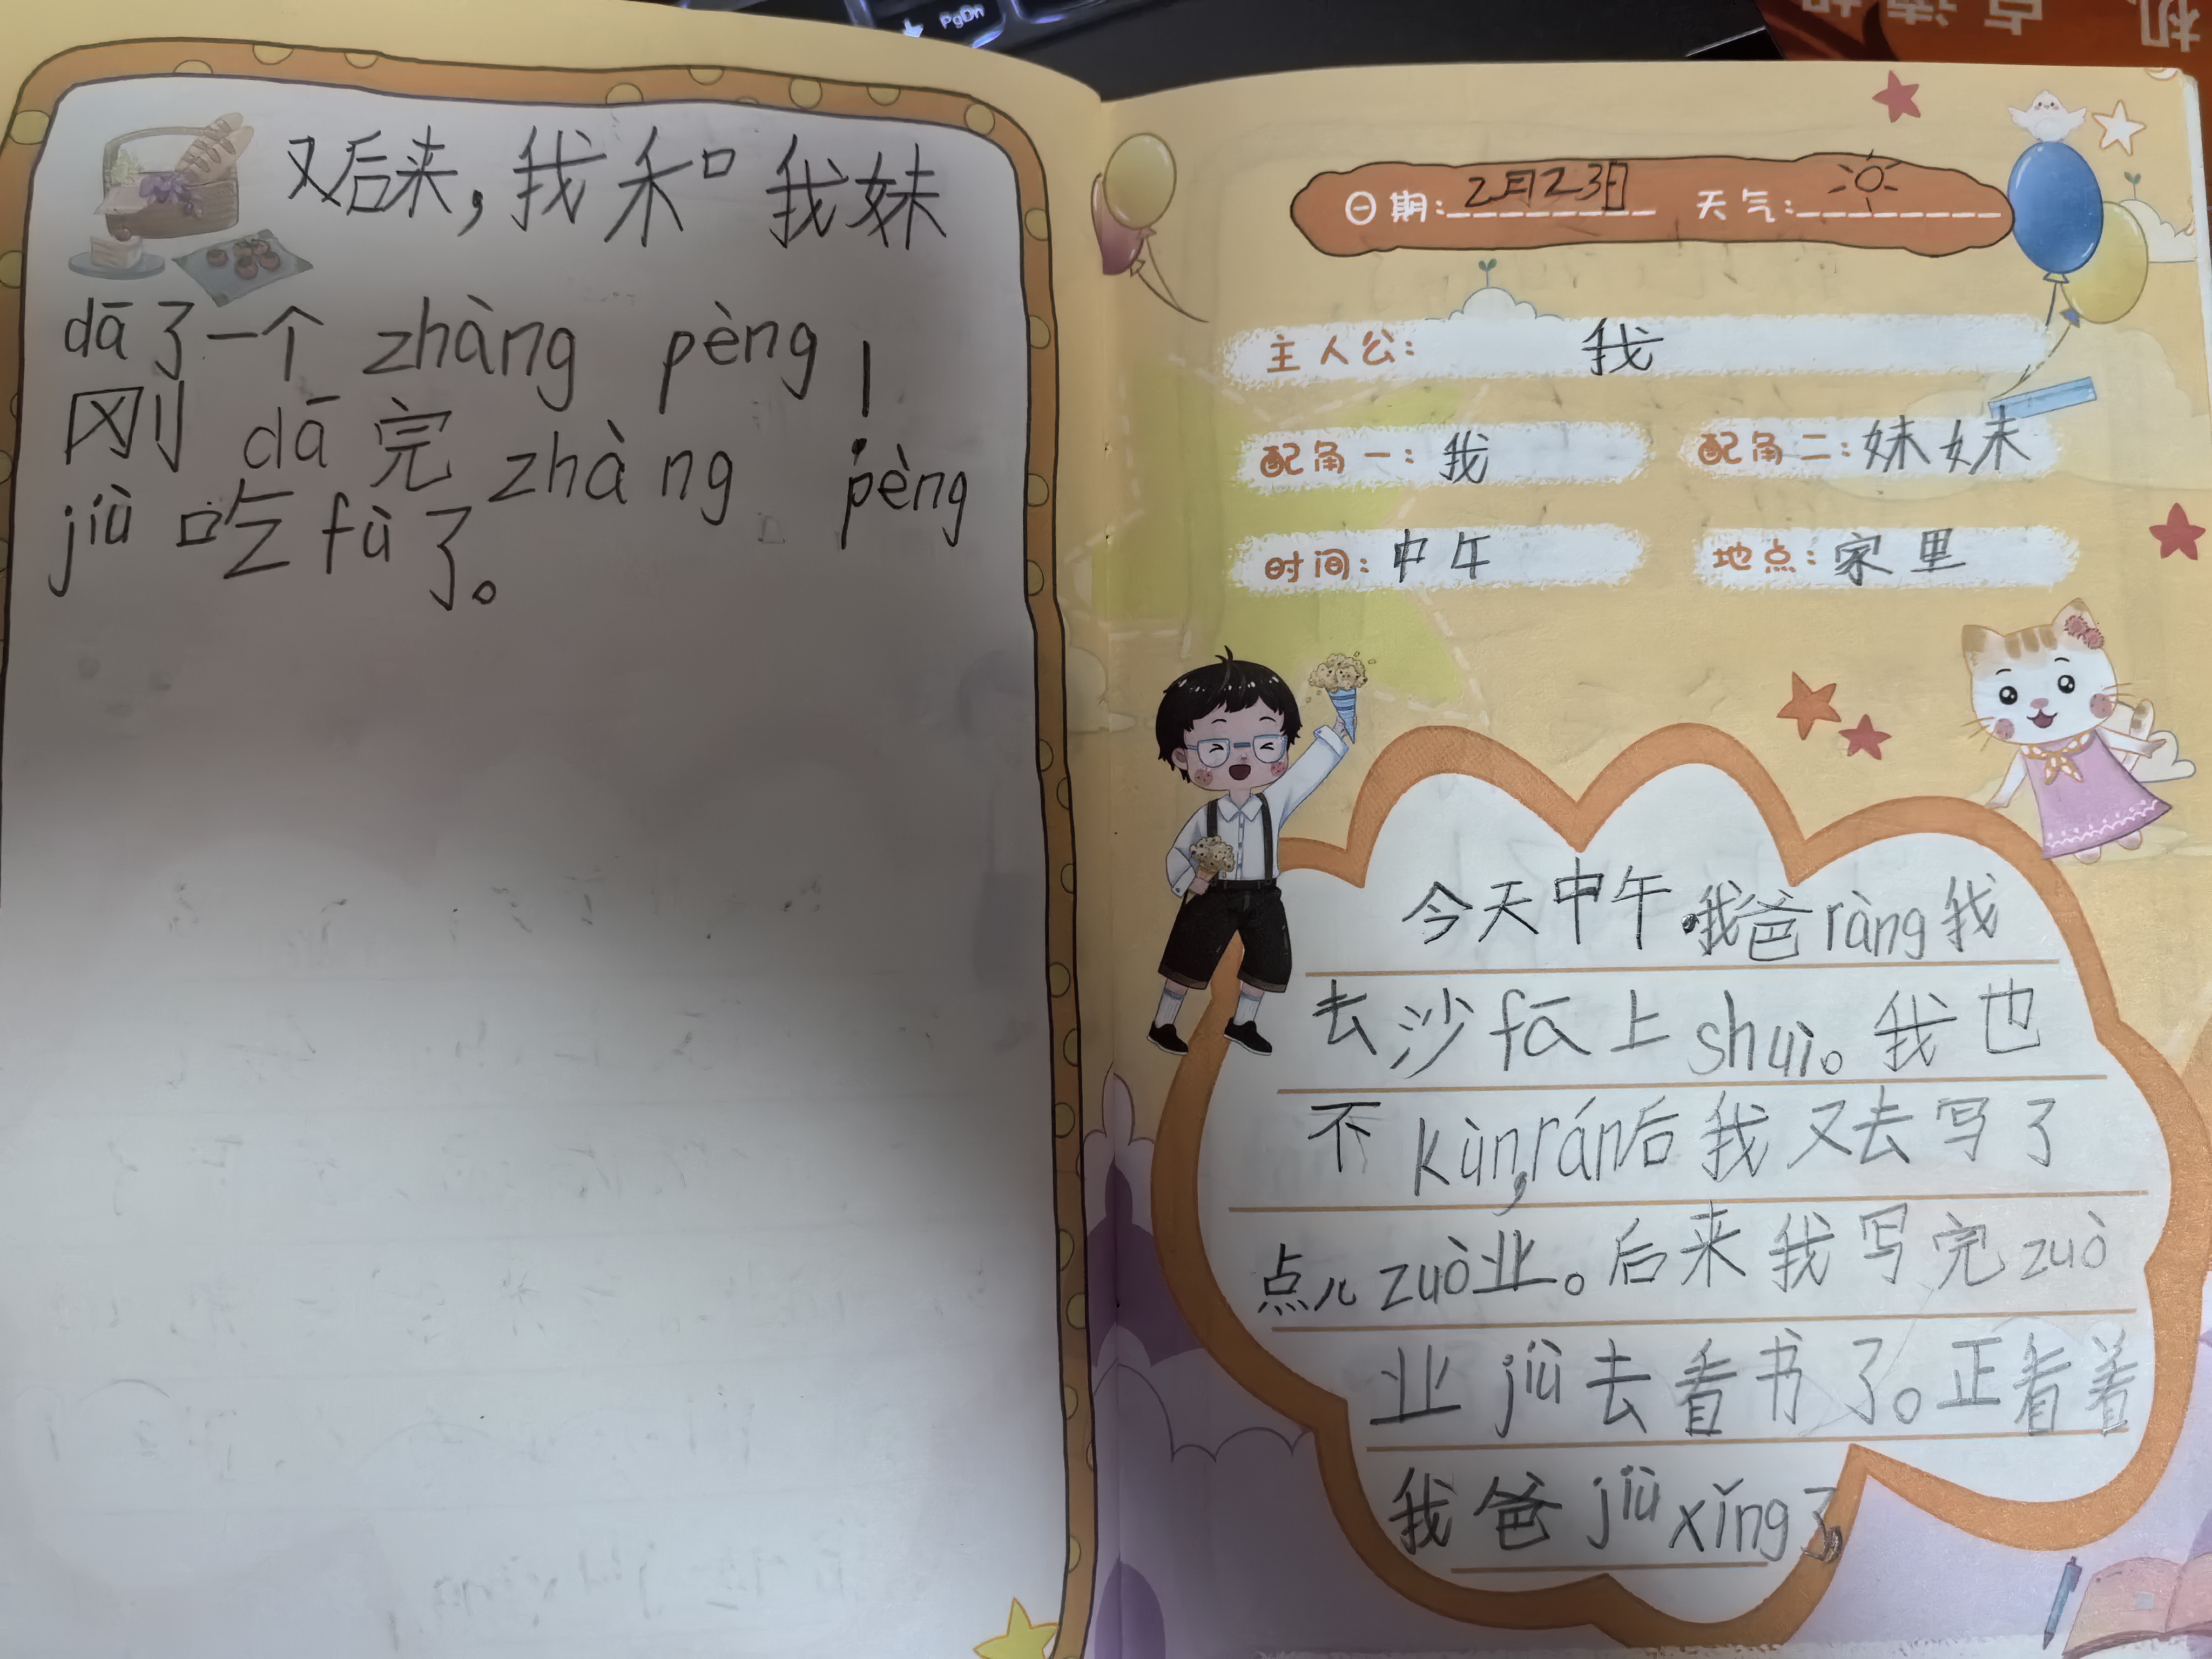 PgDn
又后来，我和我妹
dā了一个 zhàng pèng，
刚 dā 完 zhàng pèng
jiù 吃 fù 了。
日期: 2月23日 天气:
主人公: 我
配角一: 我 配角二: 妹妹
时间: 中午 地点: 家里
今天中午.我爸 ràng 我
去沙 fā 上 shuì。我也
不 kùn,rán后我又去写了
点儿 zuò业。后来我写完 zuò
业 jiù 去看书了。正看着
我爸 jiù xǐng 了,